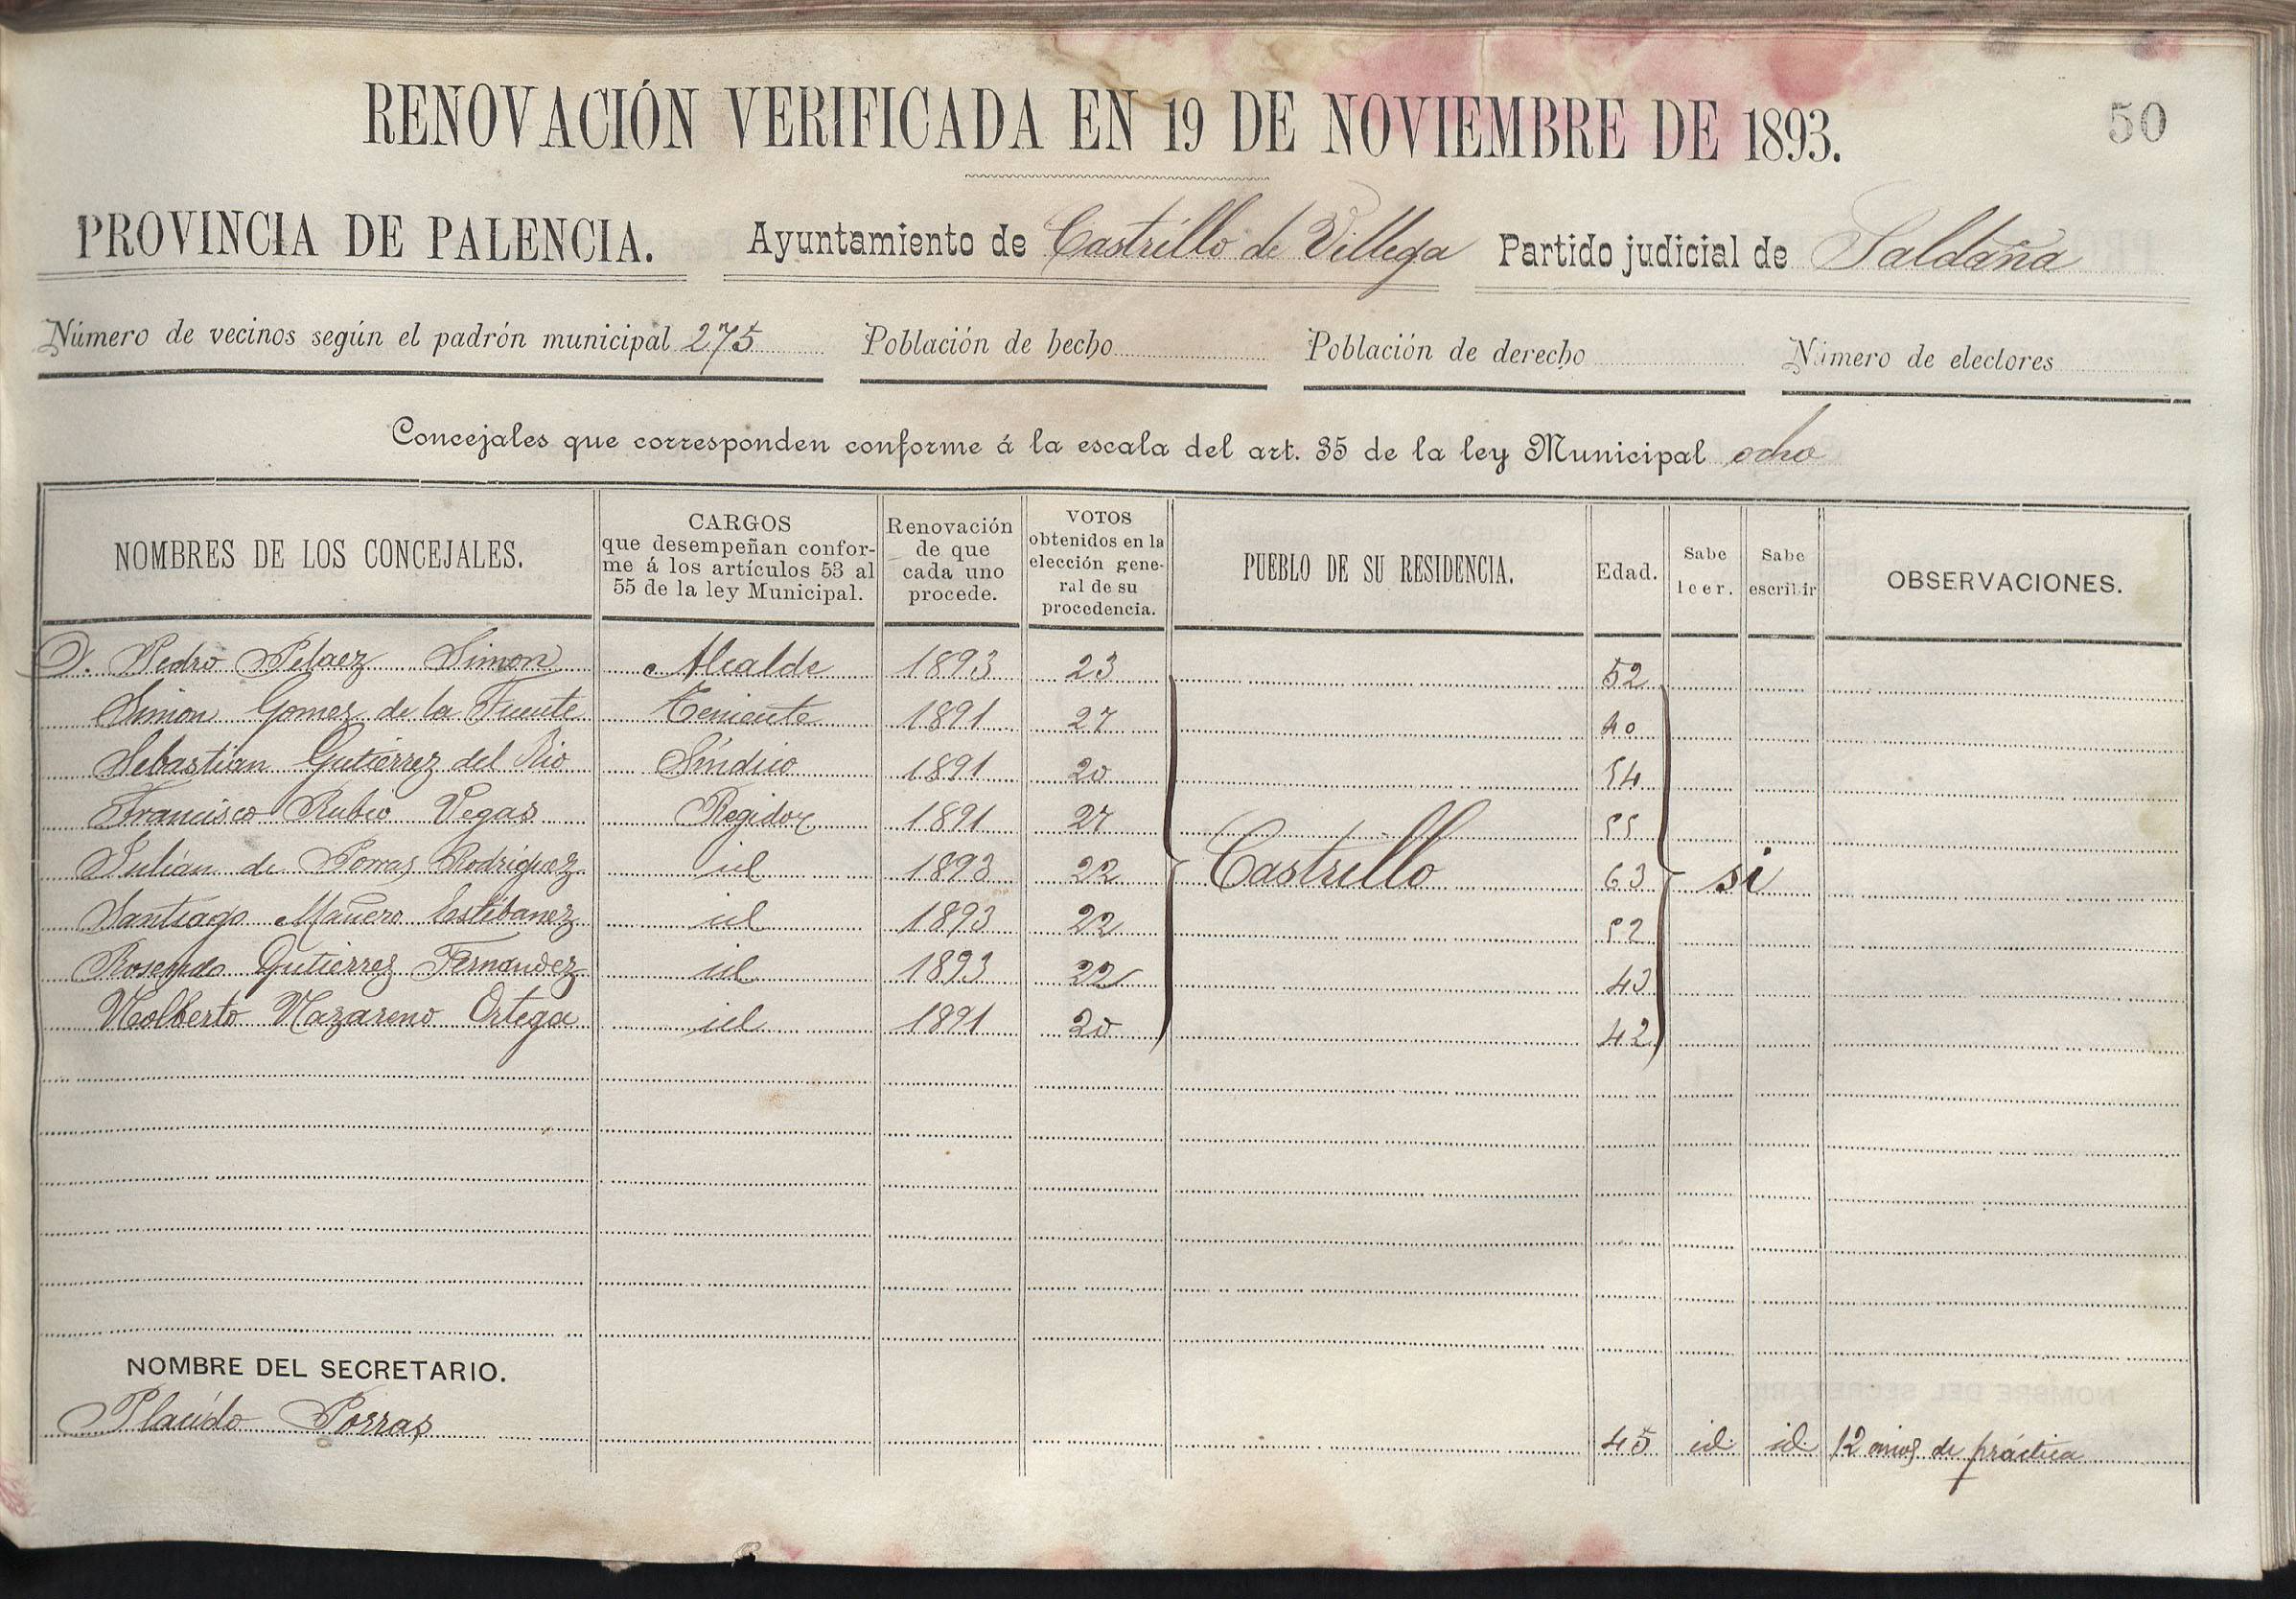 RENOVACIÓN VERIFICADA EN 19 DE NOVIEMBRE DE 1893.
50
PROVINCIA DE PALENCIA. Ayuntamiento de Castrillo de Villega Partido judicial de Saldaña
Número de vecinos según el padrón municipal 275 Población de hecho Población de derecho Número de electores
Concejales que corresponden conforme á la escala del art. 35 de la ley Municipal ocho
NOMBRES DE LOS CONCEJALES. CARGOS que desempeñan conforme á los artículos 53 al 55 de la ley Municipal. Renovación de que cada uno procede. VOTOS obtenidos en la elección general de su procedencia. PUEBLO DE SU RESIDENCIA. Edad. Sabe leer. Sabe escribir OBSERVACIONES.
D. Pedro Pelaez Simon Alcalde 1893 23 52
Simon Gomez de la Fuente Teniente 1891 27 40
Sebastian Gutierrez del Rio Síndico 1891 20 54
Francisco Rubio Vegas Regidor 1891 27 55
Julián de Porras Rodriguez id 1893 22 Castrillo 63 si
Santiago Mañero Estébanez id 1893 22 52
Rosendo Gutierrez Fernandez id 1893 22 43
Nolberto Nazareno Ortega id 1891 20 42
NOMBRE DEL SECRETARIO.
Placido Porras 45 id id 12 años de práctica